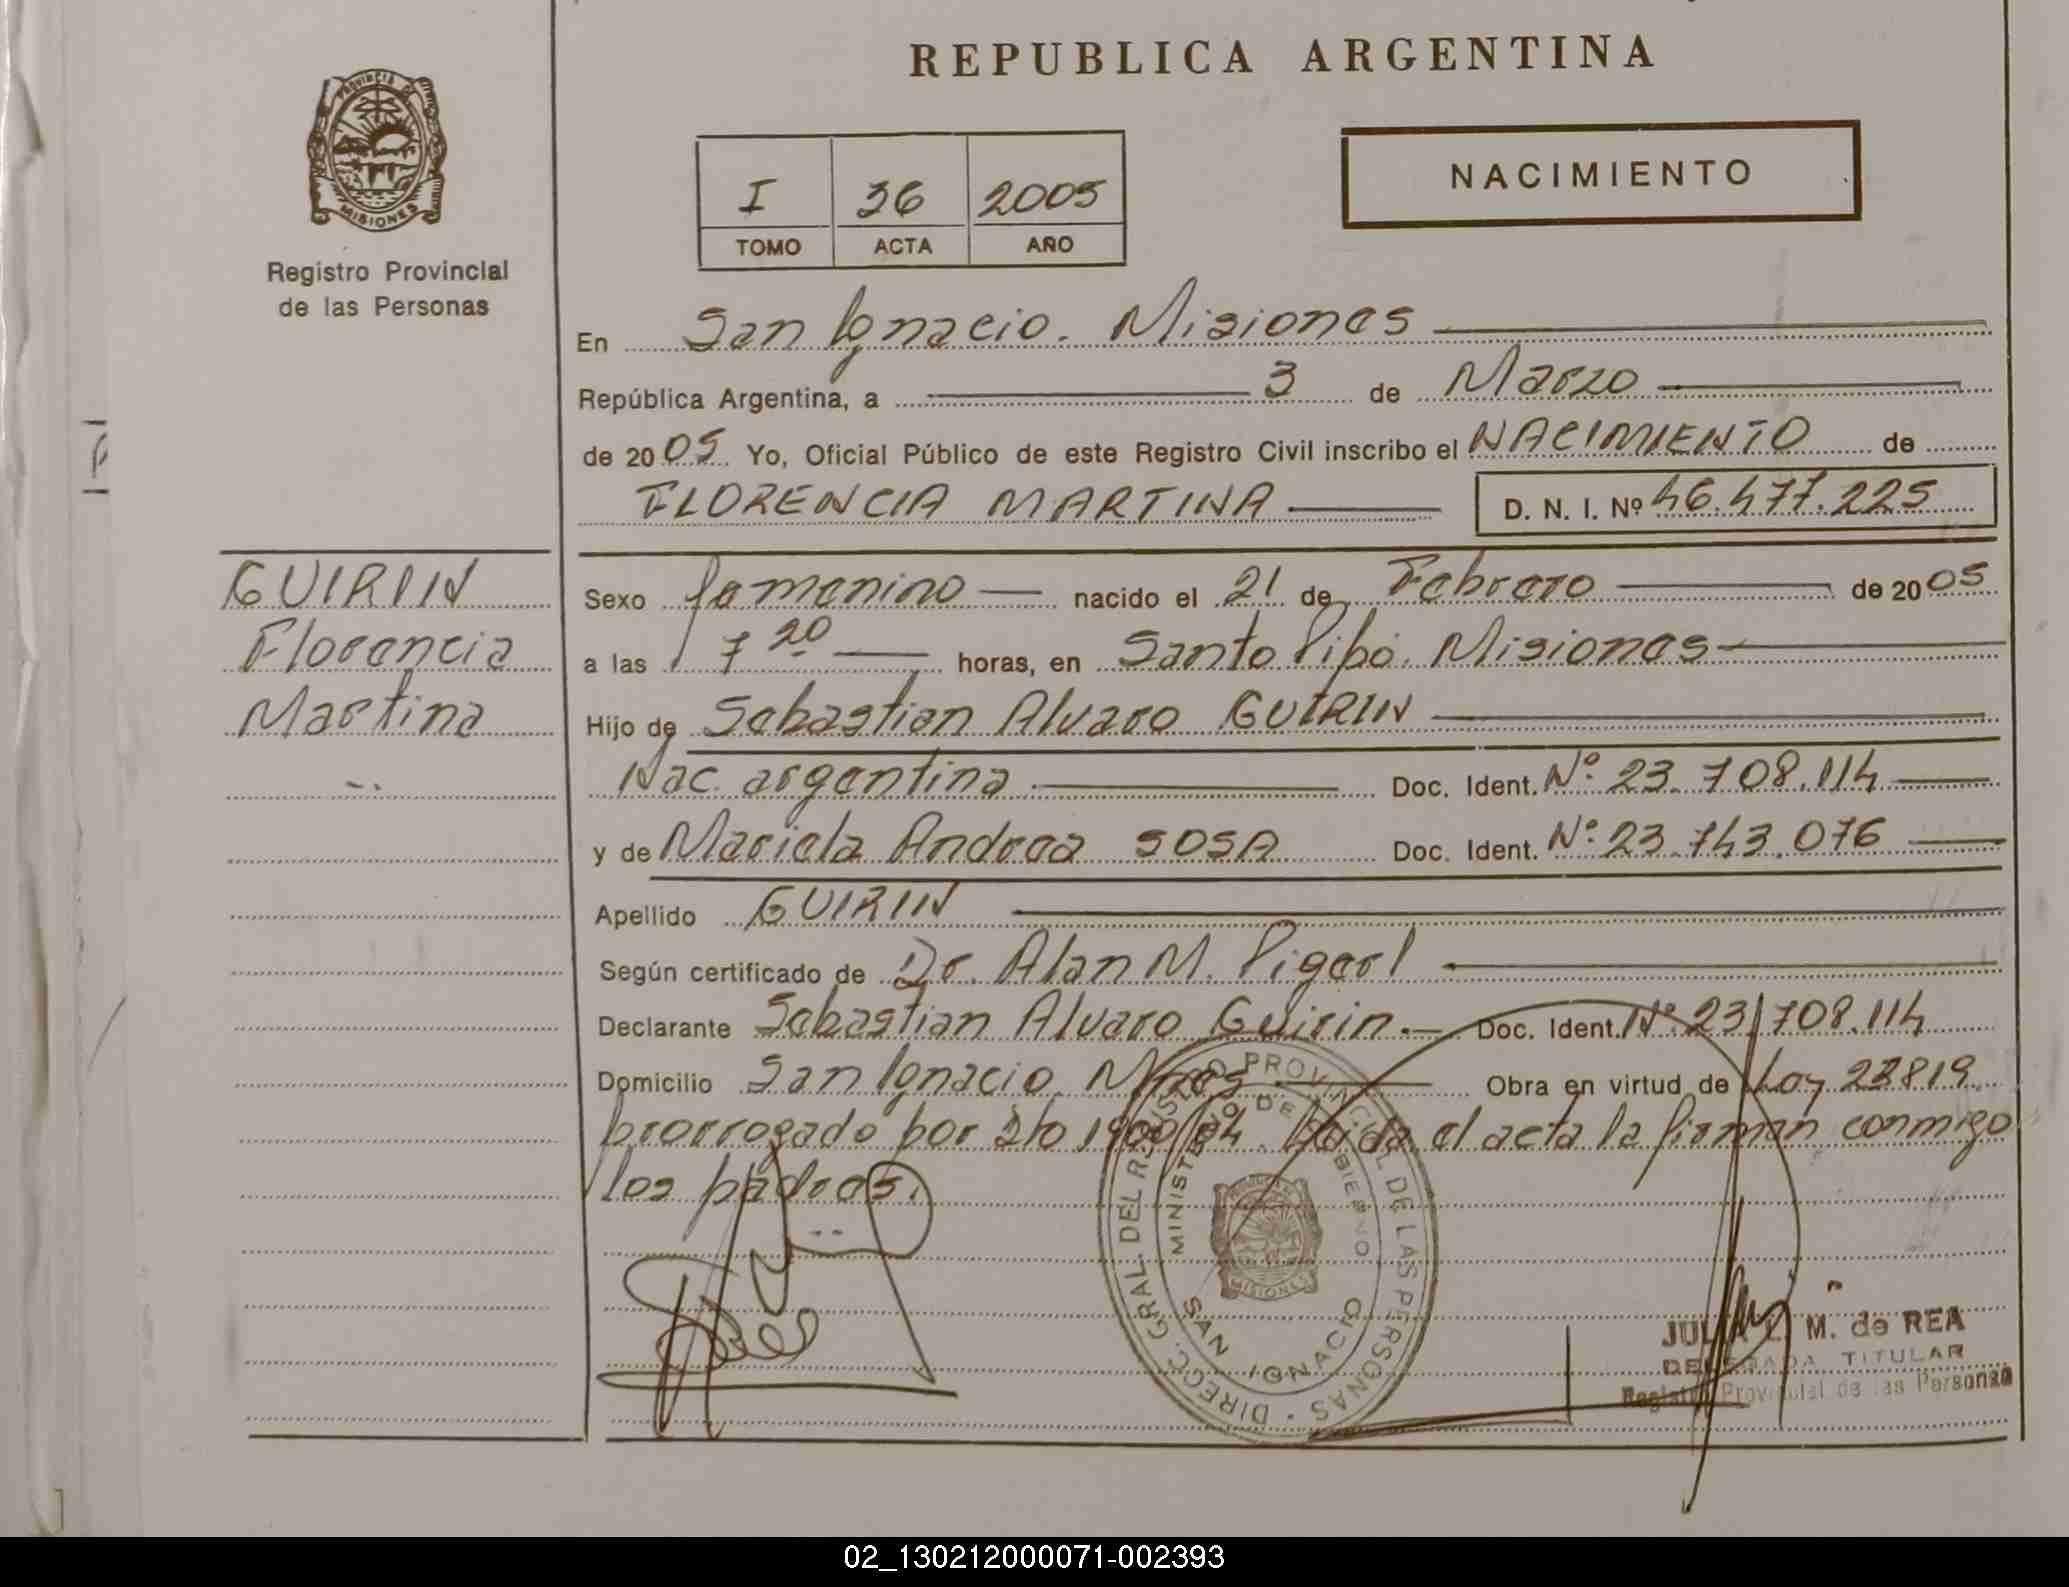 REPUBLICA ARGENTINA
PROVINCIA DE
MISIONES
Registro Provincial
de las Personas
I 36 2005
TOMO ACTA AÑO
NACIMIENTO
En San Ignacio. Misiones
República Argentina, a 3 de Marzo
de 2005 Yo, Oficial Público de este Registro Civil inscribo el NACIMIENTO de
FLORENCIA MARTINA D. N. I. Nº 46.477.225
GUIRIN
Florencia
Martina
Sexo femenino nacido el 21 de Febrero de 2005
a las 7 20 horas, en Santo Pipó. Misiones
Hijo de Sebastian Alvaro GUIRIN
Nac. argentina Doc. Ident. Nº 23.708.114
y de Mariela Andrea SOSA Doc. Ident. Nº 23.743.076
Apellido GUIRIN
Según certificado de Dr. Alan M. Pigerl
Declarante Sebastian Alvaro Guirin. Doc. Ident. Nº 23.708.114
Domicilio San Ignacio. Mnes Obra en virtud de Ley 22819
prorrogado por Dto 1900/04. el acta la firman conmigo
los padres.
DIREC. GRAL. DEL REGISTRO PROVINCIAL DE LAS PERSONAS
MINISTERIO DE GOBIERNO
MISIONES
SAN IGNACIO
M. de REA
DELEGADA TITULAR
Registro Provincial de las Personas
02_130212000071-002393